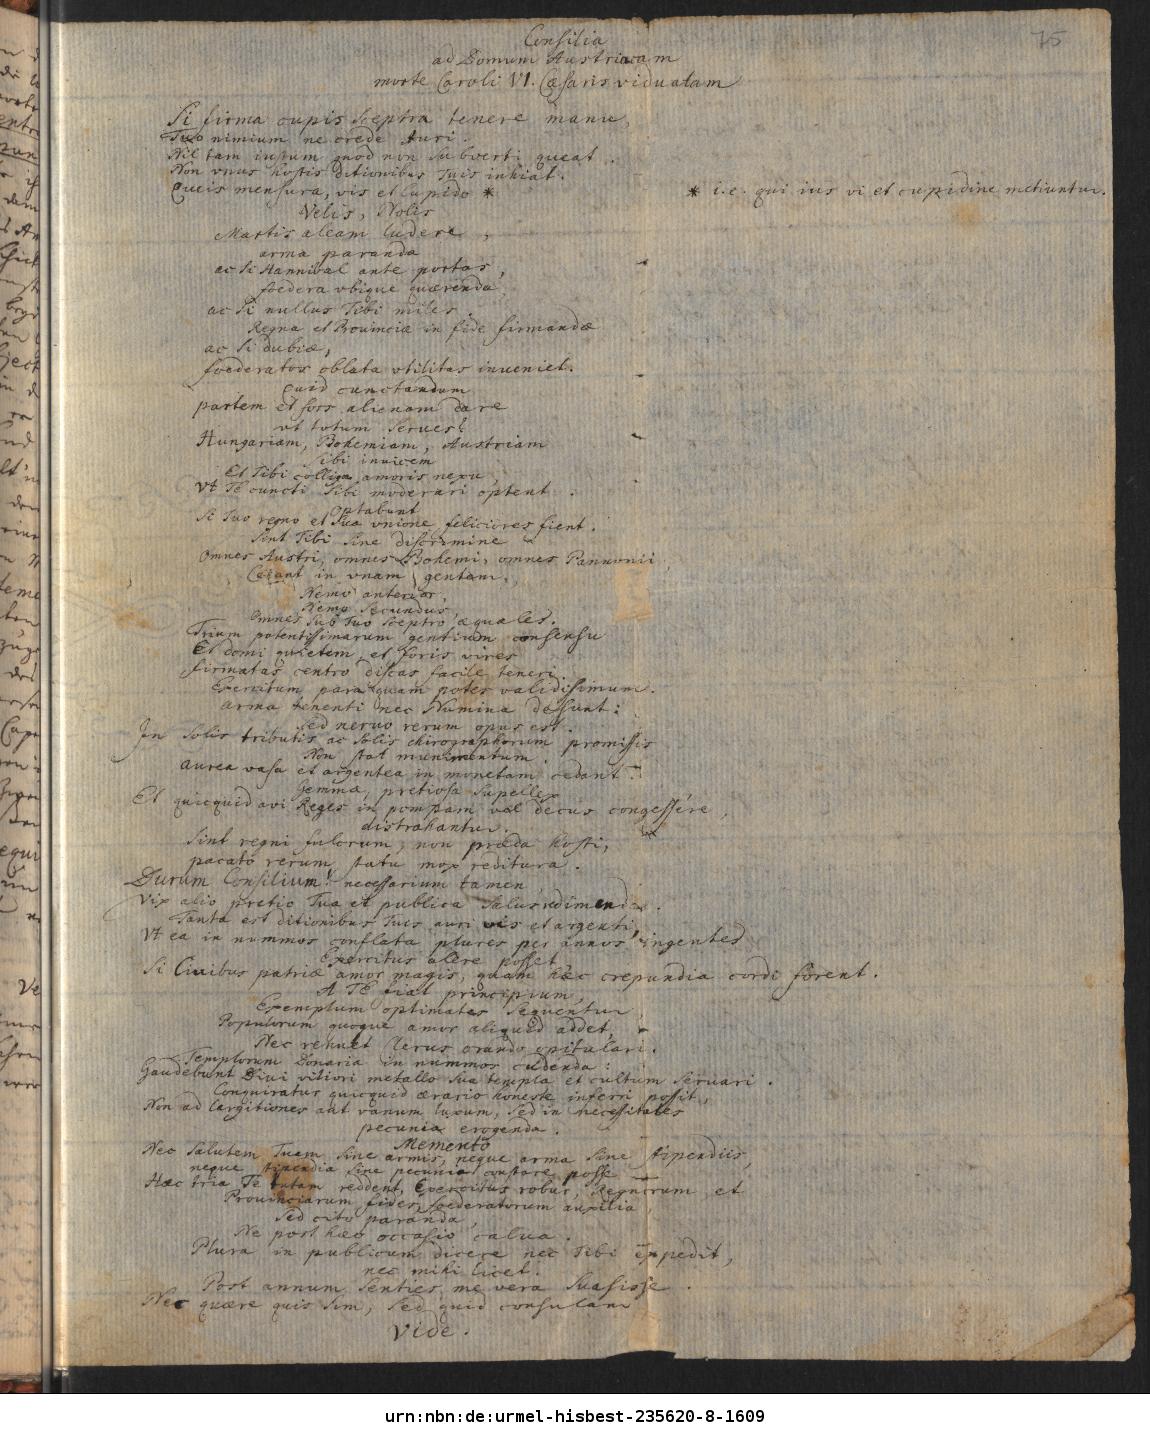 75
Consilia
ad Domum Austriacam
morte Caroli VI. Cæsaris viduatam
Si firma cupis sceptra tenere manu,
Tuo nimium ne crede Iuri.
Nil tam iustum quod non subverti queat.
Non vnus hostis ditionibus Tuis inhiat.
Queis mensura, vis et Cupido * * i.e. qui ius vi et cupidine metiuntur.
Velis, Nolis
Martis aleam ludere,
arma paranda
ac si Hannibal ante portas,
foedera vbique quærenda,
ac si nullus Tibi miles.
Regna et Prouinciæ in fide firmandæ
ac si dubiæ,
foederatos oblata vtilitas inueniet.
Quid cunctandum
partem et fors alienam dare
vt totum serues?
Hungariam, Bohemiam, Austriam
Sibi inuicem
Et Tibi colliga amoris nexu,
Vt Te cuncti Sibi moderari optent.
optabunt
Si Tuo regno et Sua vnione feliciores fient.
Sint Tibi sine discrimine
Omnes Austri, omnes Bohemi, omnes Pannonii,
Coeant in vnam gentem,
Nemo anterior,
Nemo secundus,
Omnes sub Tuo sceptro æquales.
Trium potentissimarum gentium consensu
Et domi quietem et foris vires
firmatas centro discas facile teneri.
Exercitum para quam potes validissimum.
arma tenenti nec Numina desunt:
Sed neruo rerum opus est.
In solis tributis ac solis chirographorum promissis
Non stat munimentum.
aurea vasa et argentea in monetam cedant.
Gemmæ, pretiosa supellex
Et quicquid avi Reges in pompam vel decus congessere,
distrahantur.
Sint regni fulcrum, non præda hosti,
pacato rerum statu mox reditura.
Durum Consilium! necessarium tamen
Vix alio pretio Tua et publica salus redimenda.
Tanta est ditionibus Tuis auri vis et argenti,
Vt ea in nummos conflata plures per annos ingentes
Exercitus alere posset
Si Ciuibus patriæ amor magis, quam hæc crepundia cordi forent.
A Te fiat principium,
Exemplum optimates sequentur
Populorum quoque amor aliquid addet,
Nec renuet Clerus orando opitulari.
Templorum Donaria in nummos cudenda:
Gaudebunt Divi viliori metallo sua templa et cultum seruari.
Conquiratur quicquid ærario honeste inferri possit,
Non ad largitiones aut vanum luxum, sed in necessitates
pecunia eroganda.
Memento
Nec salutem Tuam sine armis, neque arma sine stipendiis,
neque stipendia sine pecunia constare posse
Hæc tria Te tutam reddent, Exercitus robur, Regnorum et
Prouinciarum fides, foederatorum auxilia,
Sed cito paranda,
Ne post hæc occasio calua.
Plura in publicum dicere nec Tibi expedit,
nec mihi licet.
Post annum senties me vera suasisse.
Nec quære quis sim, sed quid consulam
Vide.
urn:nbn:de:urmel-hisbest-235620-8-1609